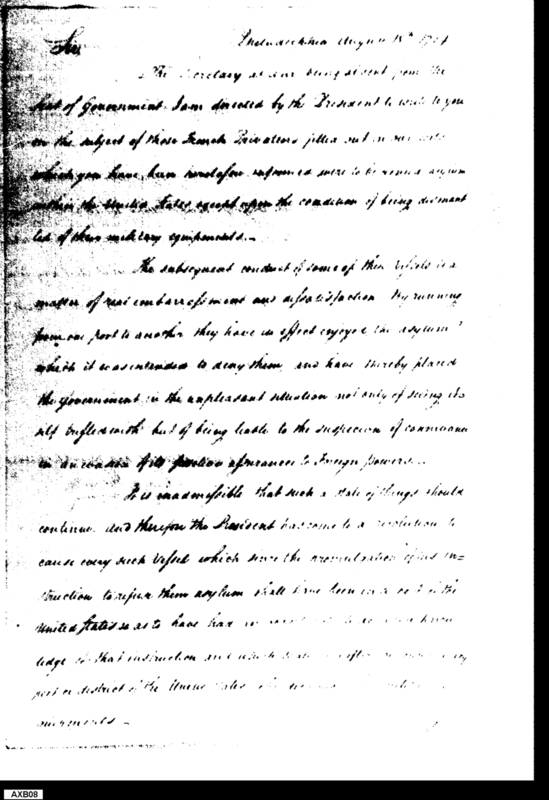 Sir
Philadelphia August 18th
The Secretary at War being absent from the
Seat of Government I am directed by the President to write to you
on the subject of those French Privateers fitted out in our ports
which you have been heretofore informed were to be asylum
within the United States except upon the condition of being dismant
led of their military equipments.
The subsequent conduct of some of these Vessels is a
matter of real embarrassment and dissatisfaction By running
from one port to another they have in effect enjoyed the asylum
which it was intended to deny them, and have thereby placed
the government in the unpleasant situation not only of seeing its
self trifled with but of being liable to the suspicion of connivance
in an evasion of its positive assurances to Foreign powers.
It is inadmissible that such a state of things should
continue and therefore the President has come to a resolution to
cause every such Vessel which since the promulgation of his in=
struction to refuse them asylum shall have been in a port of the
United States so as to have had know
ledge of that instruction and which
port or district of the United States
AXB08